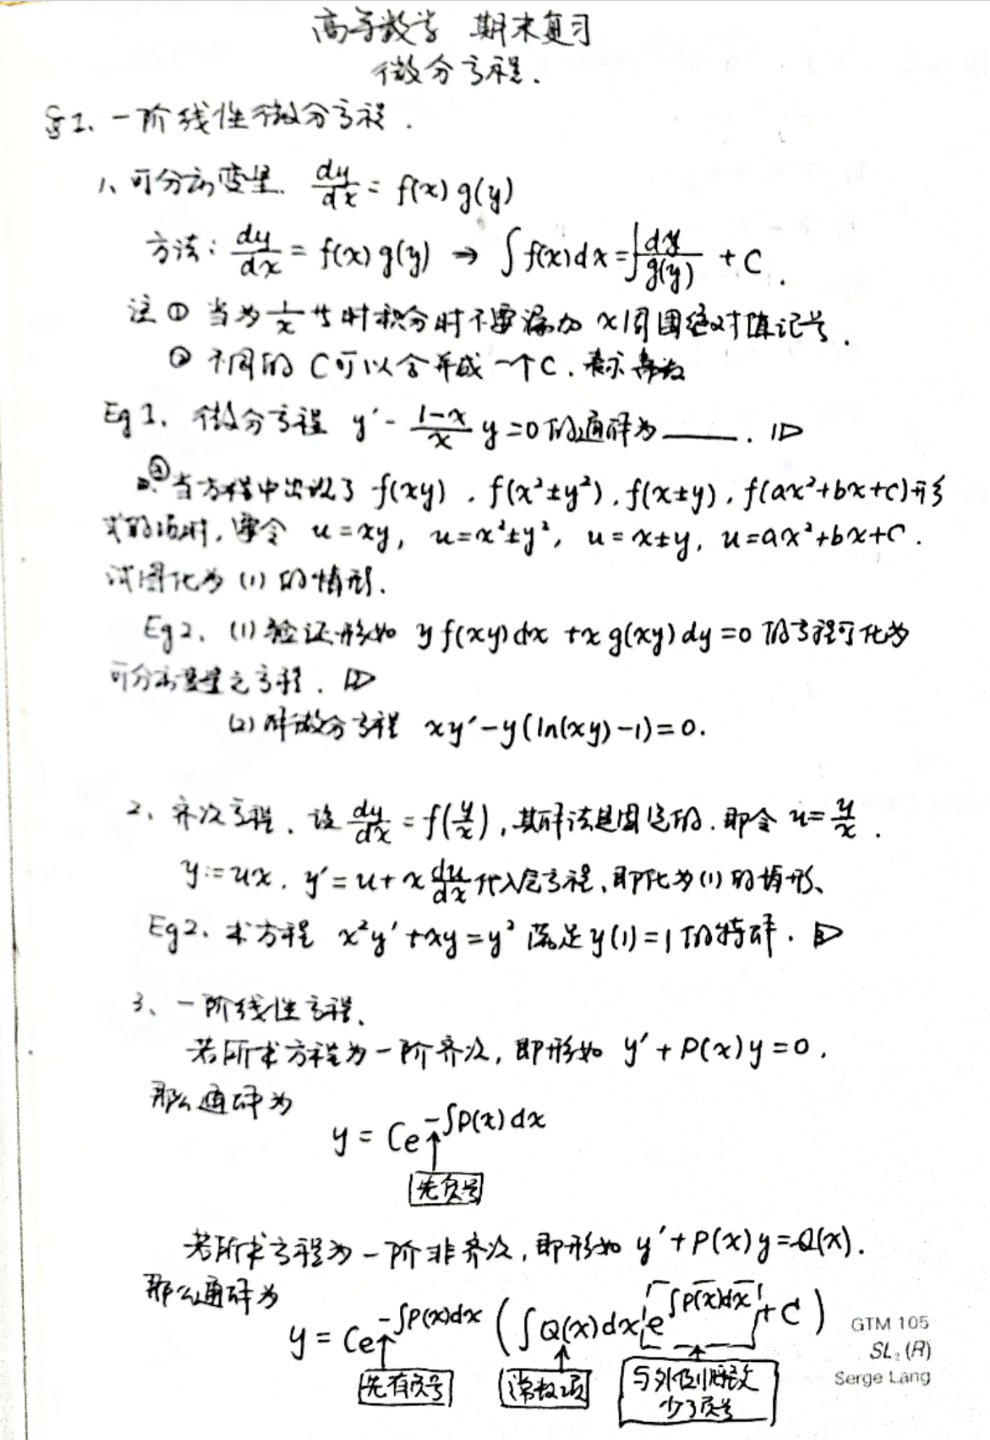 高等数学 期末复习
微分方程.
§1. 一阶线性微分方程.
1、可分离变量. dy/dx = f(x) g(y)
方法: dy/dx = f(x) g(y) → ∫f(x)dx = ∫dy/g(y) + C.
注 ① 当为 1/x 时积分时不要漏加 x 周围绝对值记号.
② 不同的 C 可以合并成一个 C. 表示常数
Eg 1. 微分方程 y' - (1-x)/x y = 0 的通解为____. ▷
③ 当方程中出现了 f(xy), f(x²±y²), f(x±y), f(ax²+bx+c) 形
式的项时, 要令 u=xy, u=x²±y², u=x±y, u=ax²+bx+c.
试图化为 (1) 的情形.
Eg2. (1) 验证形如 y f(xy)dx + x g(xy)dy = 0 的方程可化为
可分离变量之方程. ▷
(2) 解微分方程 xy' - y(ln(xy)-1) = 0.
2、齐次方程. 设 dy/dx = f(y/x), 其解法是固定的. 即令 u = y/x.
y := ux. y' = u + x du/dx 代入原方程, 即化为 (1) 的情形、
Eg2. 求方程 x²y' + xy = y² 满足 y(1) = 1 的特解. ▷
3、一阶线性方程、
若所求方程为一阶齐次, 即形如 y' + P(x)y = 0.
那么通解为
y = Ce^{-∫P(x)dx}
先负号
若所求方程为一阶非齐次, 即形如 y' + P(x)y = Q(x).
那么通解为
y = Ce^{-∫P(x)dx} (∫Q(x)dx e^{∫P(x)dx} + C)
先有负号 常数项 与外面
少了负号
GTM 105
SL₂(R)
Serge Lang